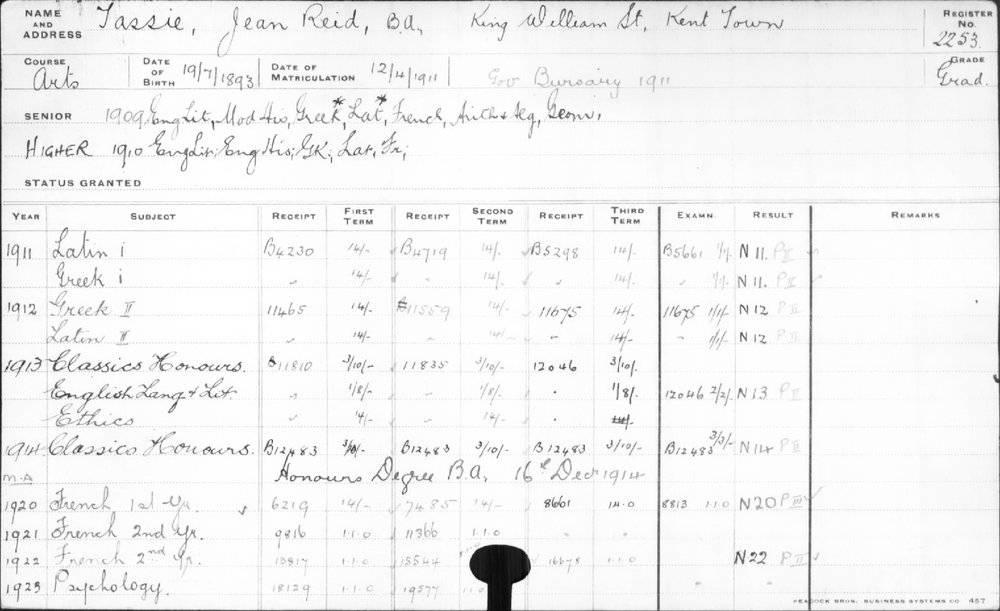 NAME AND ADDRESS Tassie, Jean Reid, B.A, King William St, Kent Town REGISTER No. 2253
COURSE Arts DATE OF BIRTH 19/7/1893 DATE OF MATRICULATION 12/4/1911 Gov Bursary 1911 GRADE Grad.
SENIOR 1909 Eng Lit, Mod His, Greek*, Lat*, French, Arith & Alg, Geom,
HIGHER 1910 Eng Lit; Eng His; Gk; Lat, Fr,
STATUS GRANTED
YEAR SUBJECT RECEIPT FIRST TERM RECEIPT SECOND TERM RECEIPT THIRD TERM EXAMN. RESULT REMARKS
1911 Latin i B4230 14/- B4719 14/- B5298 14/- B5661 1/1/- N 11. P II
Greek i " 14/- " 14/- " 14/- " 1/1/- N 11. P II
1912 Greek II 11465 14/- B11559 14/- 11675 14/- 11675 1/1/- N 12 P II
Latin II " 14/- " 14/- " 14/- " 1/1/- N 12 P II
1913 Classics Honours. B11810 3/10/- 11835 3/10/- 12046 3/10/-
English Lang & Lit " 1/8/- " 1/8/- " 1/8/- 12046 2/2/- N 13 P II
Ethics " 14/- " 14/- " 14/-
1914 Classics Honours. B12483 3/10/- B12483 3/10/- B12483 3/10/- B12483 3/3/- N 14 P II
M.A Honours Degree B.A. 16th Dec 1914
1920 French 1st Yr. 6219 14/- 7485 14/- 8661 14.0 8813 1.1.0 N 20 P III
1921 French 2nd Yr. 9816 1.1.0 11366 1.1.0
1922 French 2nd Yr. 13817 1.1.0 15544 16678 1.1.0 N 22 P II
1923 Psychology. 18129 1.1.0 19577
PEACOCK BROS. BUSINESS SYSTEMS CO 457